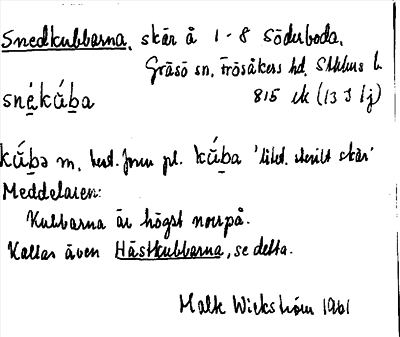 Snedkubbarna, skär å 1-8 Söderboda,
Gräsö sn, Frösåkers hd, Sthlms l.
snékúba 815 ek (13 I 1j)
kúbə m, best. form pl. kúba 'litet skilt skär'
Meddelaren:
Kubbarna är högst norrpå.
Kallas även Hästkubbarna, se detta.
Malk Wickström 1961